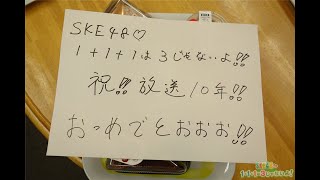 SKE48♡
1+1+1は3じゃないよ!!
祝!! 放送10年!!
おっめでとおおお!!